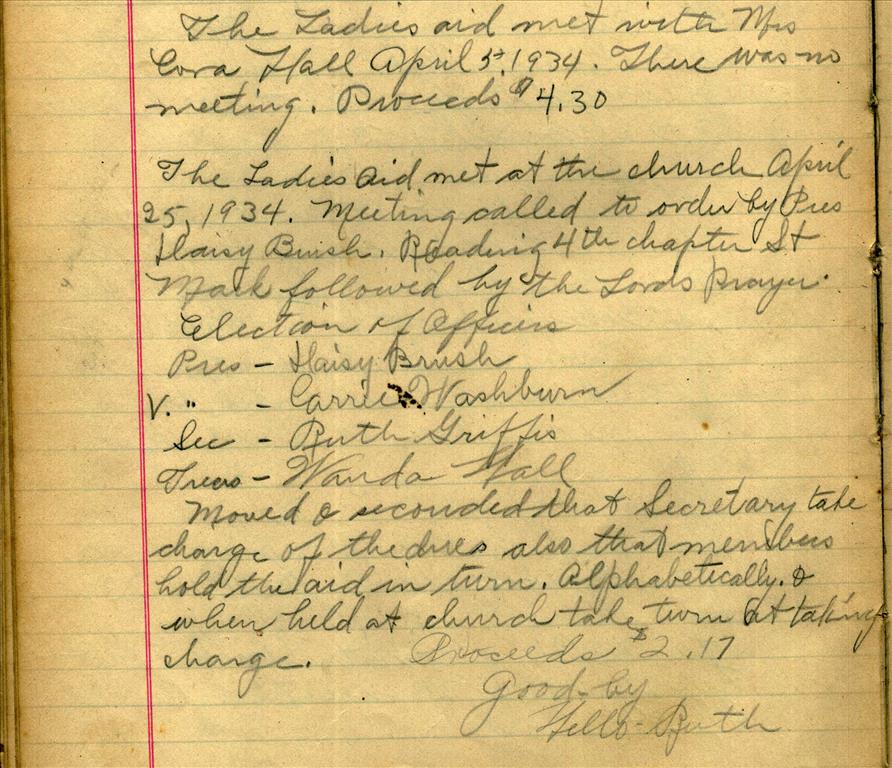 The Ladies aid met with Mrs
Cora Hall April 5, 1934. There was no
meeting. Proceeds $4.30
The Ladies Aid met at the church April
25, 1934. Meeting called to order by Pres
Daisy Brush. Reading 4th chapter St
Mark followed by the Lords Prayer.
Election of Officers
Pres - Daisy Brush
V. " - Carrie Washburn
Sec - Ruth Griffis
Treas - Wanda Hall
Moved & seconded that Secretary take
charge of the dues also that members
hold the aid in turn. Alphabetically. &
when held at church take turn at taking
charge. Proceeds $2.17
Good-by
Hello-Ruth